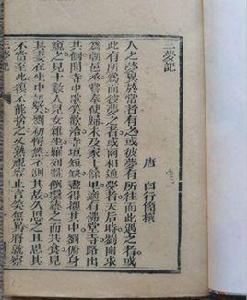 三夢記
唐 白行簡撰
人之夢異於常者有之或彼夢有所往而此遇之者或
此有所為而彼夢之者或兩相通夢者天后時劉幽求
為朝邑丞嘗奉使歸未及家十餘里適有佛堂寺路出
其側聞寺中歌笑歡洽寺垣短缺盡得覩其中劉俯身
窺之見十數人兒女雜坐羅列盤饌環繞之而共食見
其妻在坐中語笑劉初愕然不測其故久思之且思其
不當至此復不能捨之又熟視容止言笑無異將就察
三夢記